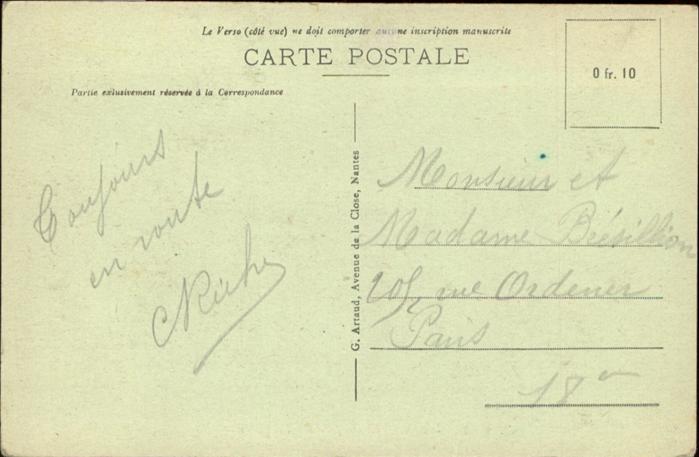 Le Verso (côté vue) ne doit comporter aucune inscription manuscrite
CARTE POSTALE
0 fr. 10
Partie exlusivement réservée à la Correspondance
Toujours
en route
G. Artaud, Avenue de la Close, Nantes
Monsieur et
Madame
205, rue Ordener
Paris
18e